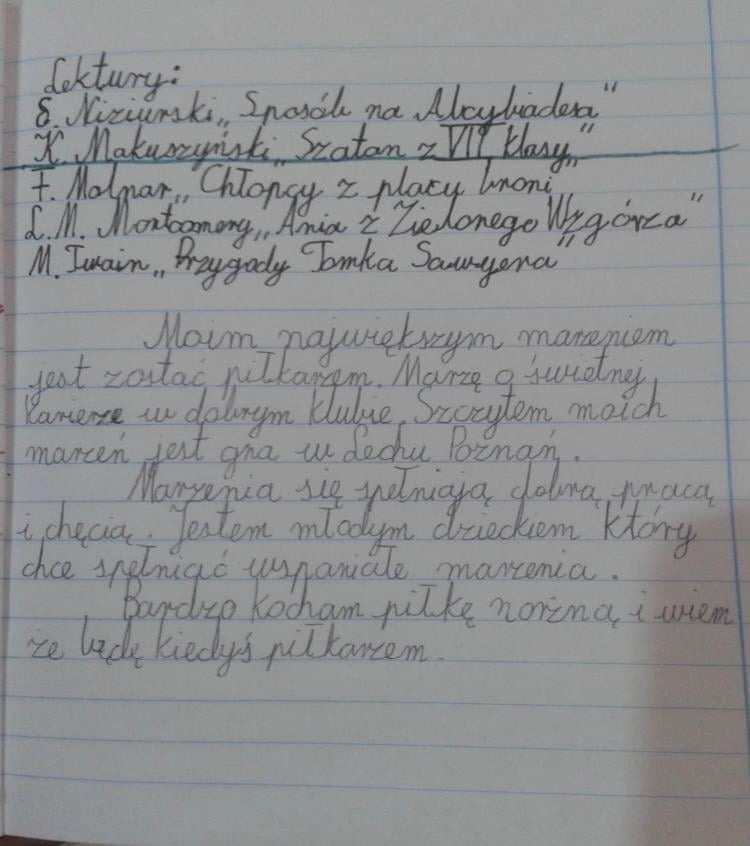 Lektury:
E. Niziurski „Sposób na Alcybiadesa"
K. Makuszyński „Szatan z VII klasy"
F. Molnar „Chłopcy z placu broni
L. M. Montoomery „Ania z Zielonego Wzgórza"
M. Twain „Przygody Tomka Sawyera"
Moim największym marzeniem
jest zostać piłkarzem. Marzę o świetnej
karierze w dobrym klubie. Szczytem moich
marzeń jest gra w Lechu Poznań.
Marzenia się spełniają dobrą pracą
i chęcią. Jestem młodym dzieckiem który
chce spełniać wspaniałe marzenia.
Bardzo kocham piłkę nożną i wiem
że będę kiedyś piłkarzem.